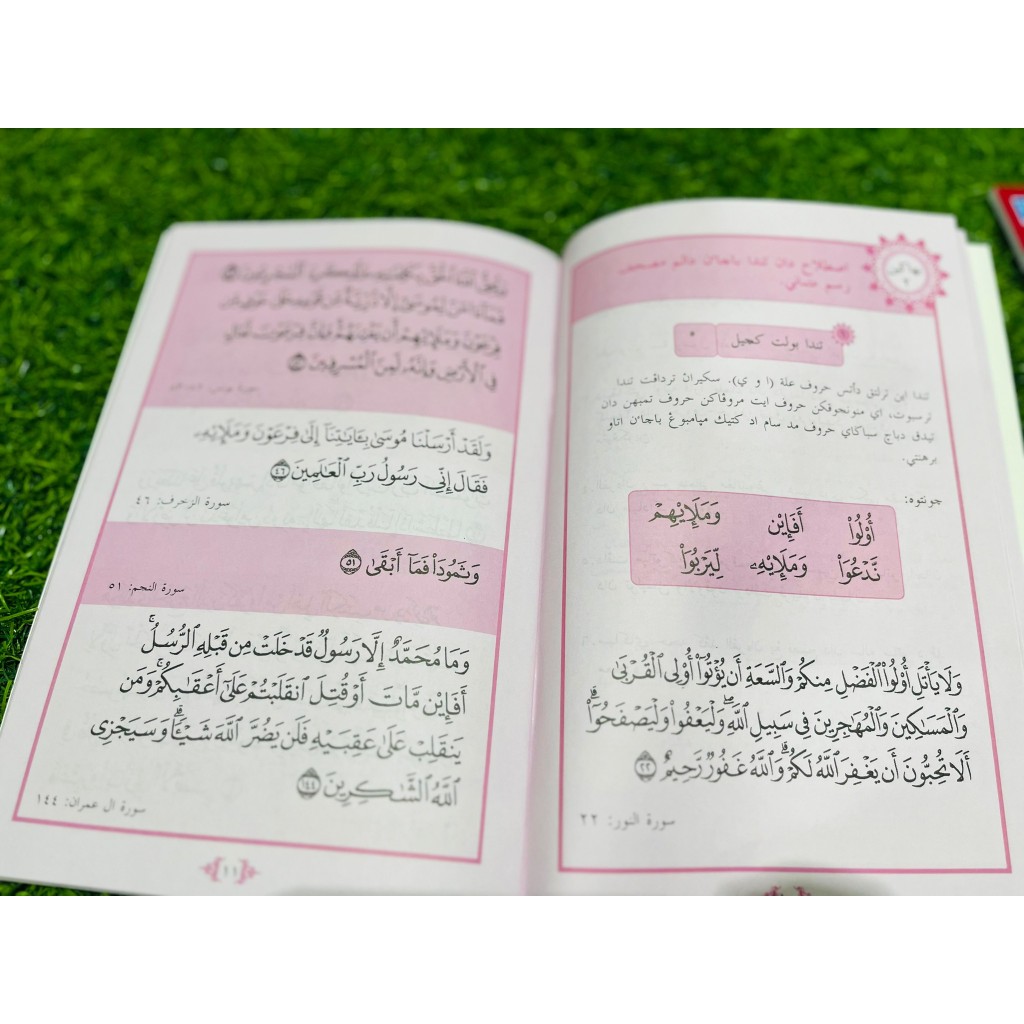 اصطلاح دان تندا باچاءن دالم مصحف
رسم عثماني.
تندا بولت كچيل
تندا اين ترلتق دأتس حروف علة (ا و ي). سكيران تردافت تندا
ترسبوت، اي منونجوقكن حروف ايت مروفاكن حروف تمبهن دان
تيدق دباچ سباڬاي حروف مد سام اد كتيك مڽامبوڠ باچاءن اتاو
برهنتي.
چونتوه:
أُوْلُوا۟ أَفَإِيْن وَمَلَإِيْهِمْ
نَّدْعُوَا۟ وَمَلَإِيْهِۦ لِّيَرْبُوَا۟
وَلَا يَأْتَلِ أُو۟لُوا۟ ٱلْفَضْلِ مِنكُمْ وَٱلسَّعَةِ أَن يُؤْتُوٓا۟ أُو۟لِى ٱلْقُرْبَىٰ
وَٱلْمَسَٰكِينَ وَٱلْمُهَٰجِرِينَ فِى سَبِيلِ ٱللَّهِ ۖ وَلْيَعْفُوا۟ وَلْيَصْفَحُوٓا۟ ۗ
أَلَا تُحِبُّونَ أَن يَغْفِرَ ٱللَّهُ لَكُمْ ۗ وَٱللَّهُ غَفُورٌ رَّحِيمٌ ٢٢
سورة النور: ٢٢
فِرْعَوْنَ وَمَلَإِيْهِمْ أَن يَفْتِنَهُمْ ۚ وَإِنَّ فِرْعَوْنَ لَعَالٍ
فِى ٱلْأَرْضِ وَإِنَّهُۥ لَمِنَ ٱلْمُسْرِفِينَ
وَلَقَدْ أَرْسَلْنَا مُوسَىٰ بِـَٔايَٰتِنَآ إِلَىٰ فِرْعَوْنَ وَمَلَإِيْهِۦ
فَقَالَ إِنِّى رَسُولُ رَبِّ ٱلْعَٰلَمِينَ ٤٦
سورة الزخرف: ٤٦
وَثَمُودَا۟ فَمَآ أَبْقَىٰ ٥١
سورة النجم: ٥١
وَمَا مُحَمَّدٌ إِلَّا رَسُولٌ قَدْ خَلَتْ مِن قَبْلِهِ ٱلرُّسُلُ ۚ
أَفَإِيْن مَّاتَ أَوْ قُتِلَ ٱنقَلَبْتُمْ عَلَىٰٓ أَعْقَٰبِكُمْ ۚ وَمَن
يَنقَلِبْ عَلَىٰ عَقِبَيْهِ فَلَن يَضُرَّ ٱللَّهَ شَيْـًٔا ۗ وَسَيَجْزِى
ٱللَّهُ ٱلشَّٰكِرِينَ ١٤٤
سورة ال عمران: ١٤٤
١١